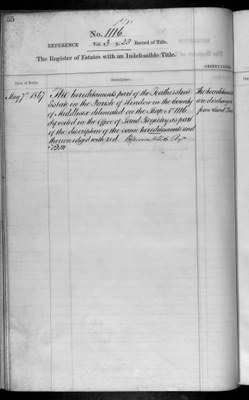 65
No. 1116.
REFERENCE Vol. 3 p. 23 Record of Title.
The Register of Estates with an Indefeasible Title.
Date of Entry.
Description.
OBSERVATIONS.
May 7th 1867
The hereditaments part of the Featherstone
Estate in the Parish of Hendon in the County
of Middlesex delineated on the Map No 1116
deposited in the Office of Land Registry as part
of the description of the same hereditaments and
thereon edged with red.
The hereditaments
are discharged
from